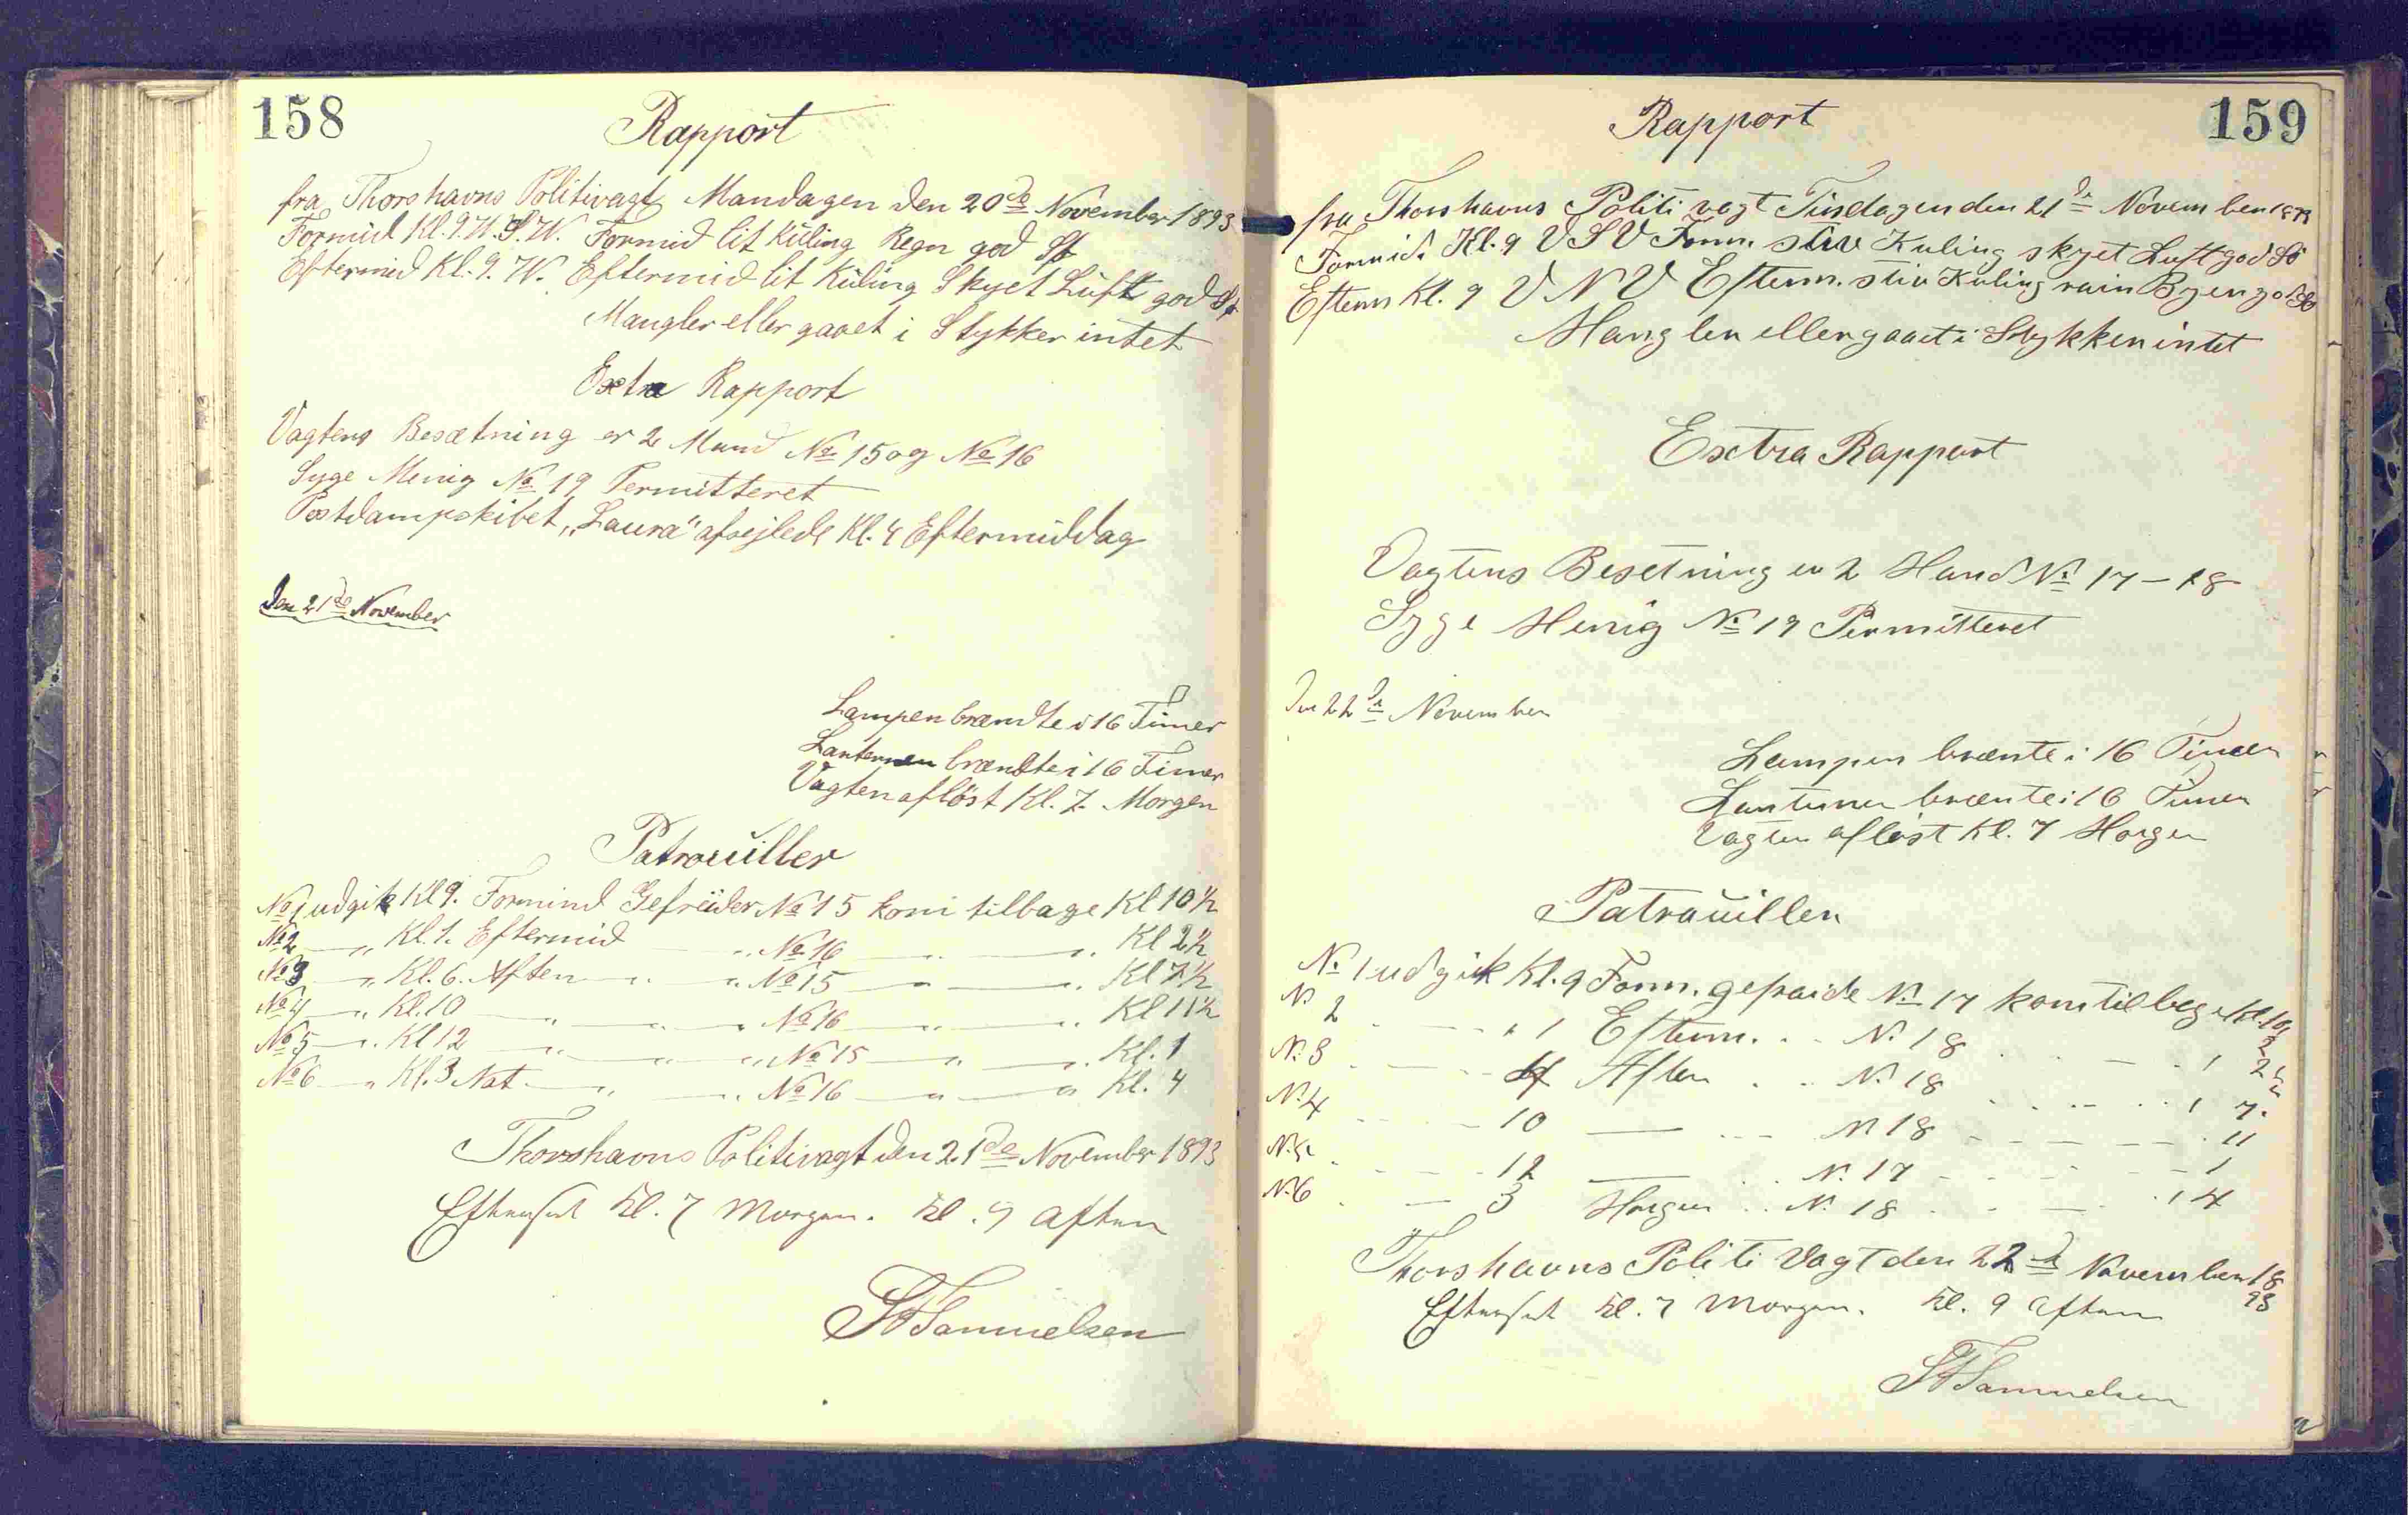 158
Rapport
fra Thorshavns Politivagt Mandagen den 20de November 1893
Formid Kl. 9. W.S.W. Formid lit Kuling Regn god Sø
Eftermid Kl. 9. W. Eftermid lit Kuling Skyet Luft god Sø
Mangler eller gaaet i Stykker intet
Extra Rapport
Vagtens Besætning er 2 Mand No 15 og No 16
Syge Menig No 19 Permitteret
Postdampskibet „Laura" afsejlede Kl. 4 Eftermiddag
Den 21de November
Lampen brændte i 16 Timer
Lanternen brændte i 16 Timer
Vagten afløst Kl. 7. Morgen
Patrouiller
No 1 udgik Kl 9. Formind Gefreider No 15 kom tilbage Kl 10½
No 2 — „ Kl. 1. Eftermid — „ No 16 — „ — „ Kl 2½
No 3 — „ Kl. 6. Aften — „ — „ No 15 — „ — „ Kl 7½
No 4 — „ Kl. 10 — „ — „ — „ No 16 — „ — „ Kl 11½
No 5 — „ Kl 12 — „ — „ — „ No 15 — „ — „ Kl. 1
No 6 — „ Kl. 3 Nat — „ — „ No 16 — „ — „ Kl. 4
Thorshavns Politivagt den 21de November 1893
Efterset Kl. 7 Morgen. Kl. 9 Aften
Samuelsen
159
Rapport
fra Thorshavns Politi vagt Tirsdagen den 21de November 1893
Formid. Kl. 9 V S V Form. stiv Kuling skyet Luft god Sø
Efterm Kl. 9 V N V Efterm. stiv Kuling Byer god Sø
Mangler eller gaaet i Stykker intet
Extra Rapport
Vagtens Besetning er 2 Mand No 17 – 18
Syge Menig No 19 Permitteret
Den 22de November
Lampen brænte i 16 Timer
Lanternen brænte i 16 Timer
Vagten afløst Kl. 7 Morgen
Patrouiller
No 1 udgik Kl. 9 Form. gefraide No 17 kom tilbage Kl 10½
No 2 - - - „ 1 Efterm. . . No 18 . . - - . 2½
No 3 . - - - Aften . . No 18 . . - - . 7.
No 4 - - - 10 — - - - No 18 - - - - - 11
No 5 . - - - 12 — . . No 17 - - - - - 1
No 6 . - 3 Morgen . . No 18 . . - - . 4
Thorshavns Politi Vagt den 22de November 1893
Efterset Kl. 7 Morgen. Kl. 9 Aften
Samuelsen